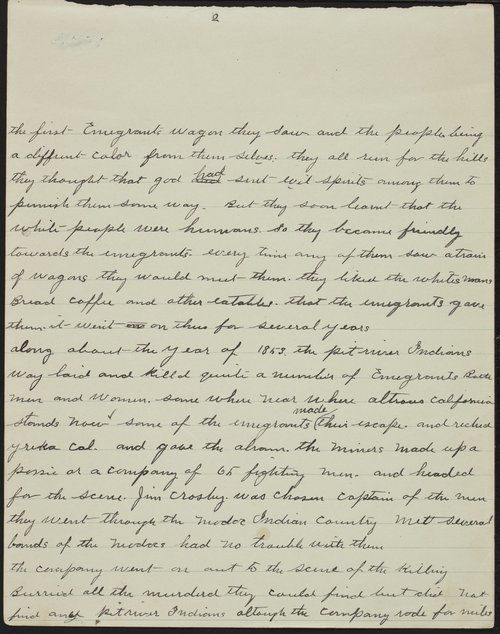 2
the first Emegrants wagon they saw and the people being
a diffrunt color from them selves. they all run for the hills
they thought that god had sent evil spirits among them to
punnish them some way. But they soon learnt that the
white people were humans. So they became friendly
towards the emegrants. every time any of them saw a train
of wagons they would meet them. they liked the whites mans
Bread coffee and other eatables. that the emegrants gave
them. it went on on thus for several years
along about the year of 1853. the pit river Indians
way laid and killd quite a number of Emegrants Both
men and women. some where near where alturas california
stands now some of the emegrants made their escape. and reched
yreka Cal. and gave the alarm. the miners made up a
possie or a company of 65 fighting men. and headed
for the scene. Jim Crosby. was chosen captain of the men
they went through the modoc Indian country mett several
bands of the modocs had no trouble with them
the company went on out to the scene of the killing
Burried all the murderd they could find but did not
find any pit river Indians altough the company rode for miles